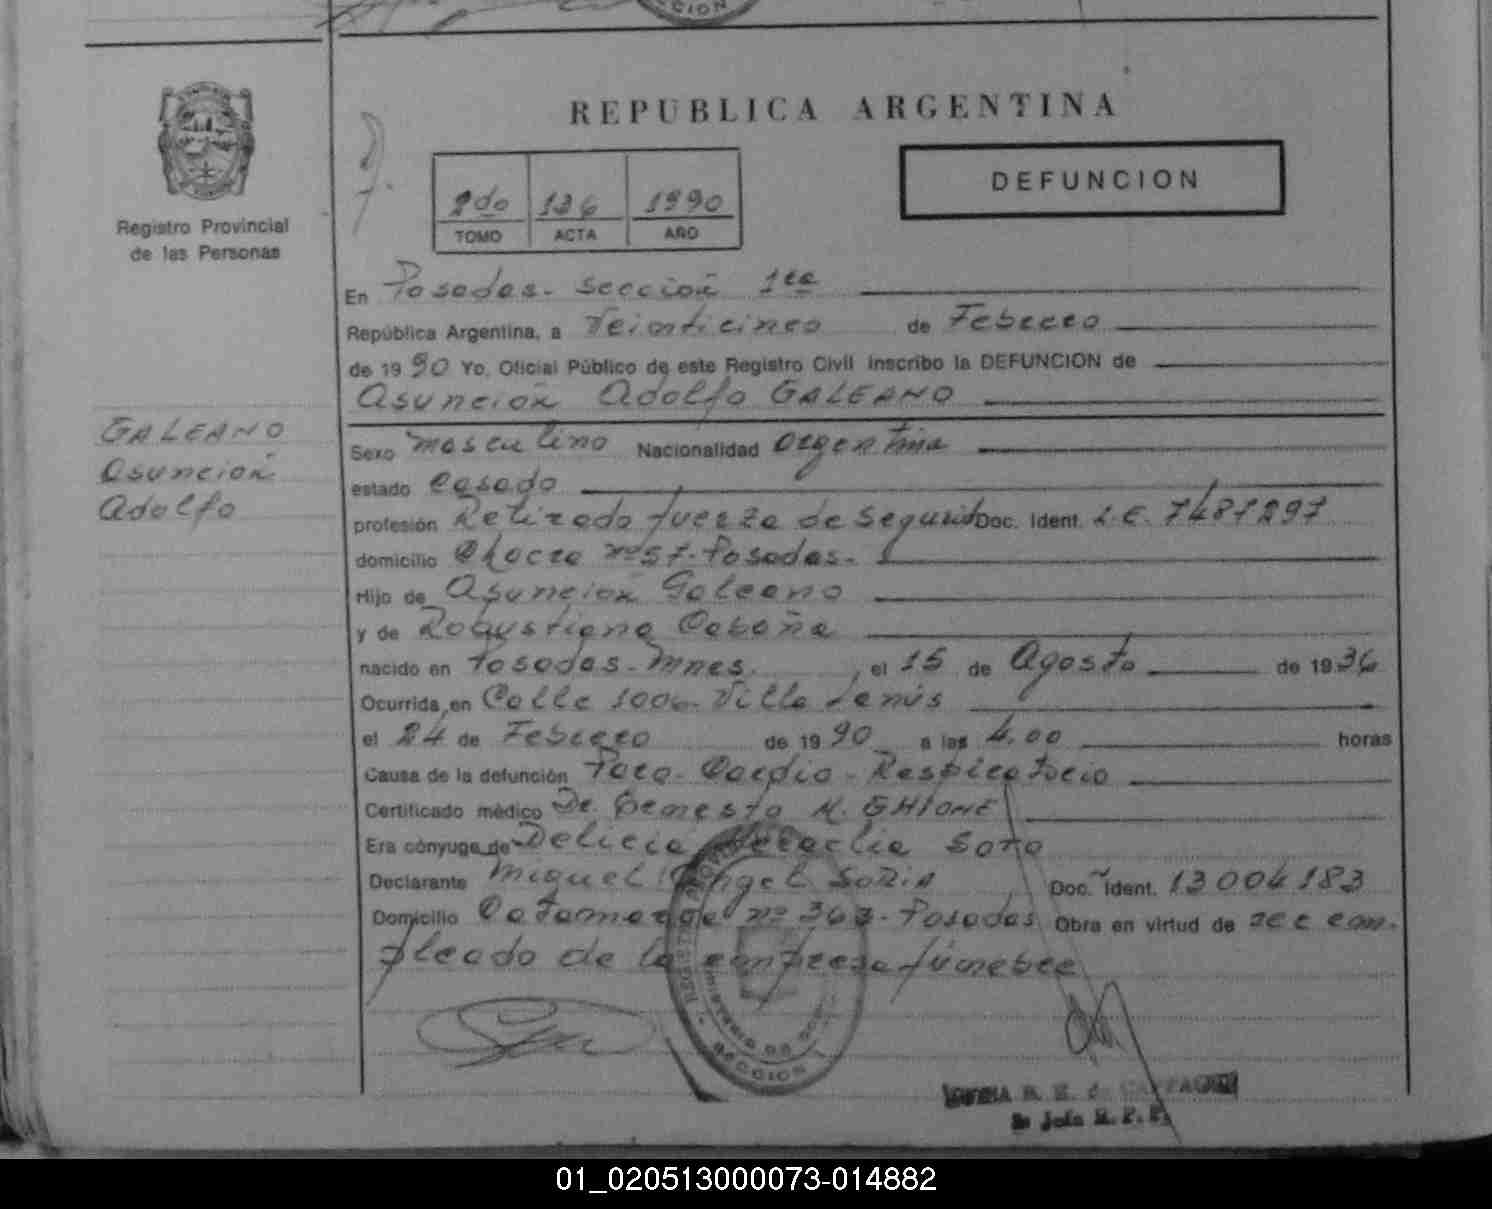 CCION
REPUBLICA ARGENTINA
DEFUNCION
2do 136 1990
TOMO ACTA AÑO
Registro Provincial
de las Personas
En Posadas - Sección 1ra
República Argentina, a Veinticinco de Febrero
de 1990 Yo, Oficial Público de este Registro Civil inscribo la DEFUNCION de
Asunción Adolfo GALEANO
GALEANO
Asunción
Adolfo
Sexo masculino Nacionalidad argentina
estado Casado
profesión Retirado fuerza de Segurid Doc. Ident. L.E. 7487297
domicilio Chacra nº 57 - Posadas -
Hijo de Asunción Galeano
y de Robustiana Cabaña
nacido en Posadas - Mnes. , el 15 de Agosto de 1936
Ocurrida en Calle 1006 - Villa Lanús
el 24 de Febrero de 1990 a las 4.00 horas
Causa de la defunción Paro - Cardio - Respiratorio
Certificado médico Dr. Ernesto N. GHIONE
Era cónyuge de Delicia Heraclia Soto
Declarante Miguel Angel SORIA Doc. Ident. 13004183
Domicilio Catamarca nº 363 - Posadas Obra en virtud de ser em-
pleado de la empresa fúnebre
SECCION
2º Jefe R. P. P.
01_020513000073-014882